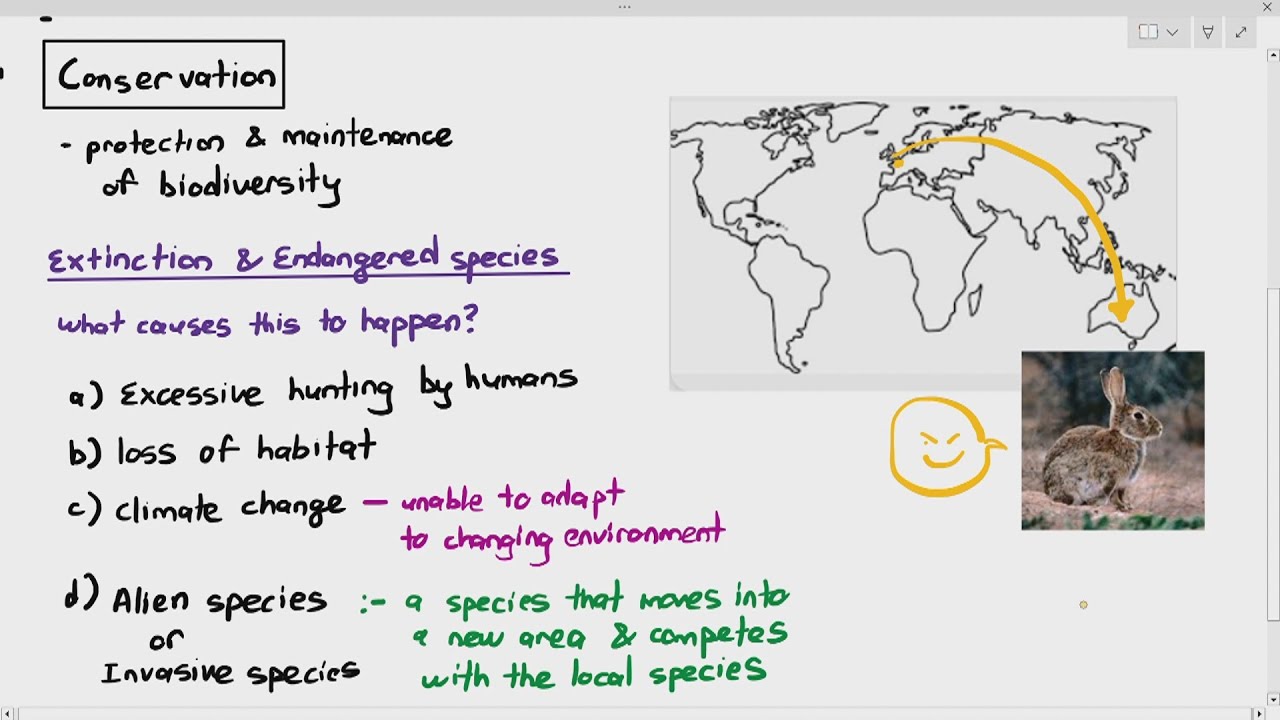 Conservation
- protection & maintenance
of biodiversity
Extinction & Endangered species
what causes this to happen?
a) Excessive hunting by humans
b) loss of habitat
c) climate change — unable to adapt
to changing environment
d) Alien species :- a species that moves into
or a new area & competes
Invasive species with the local species